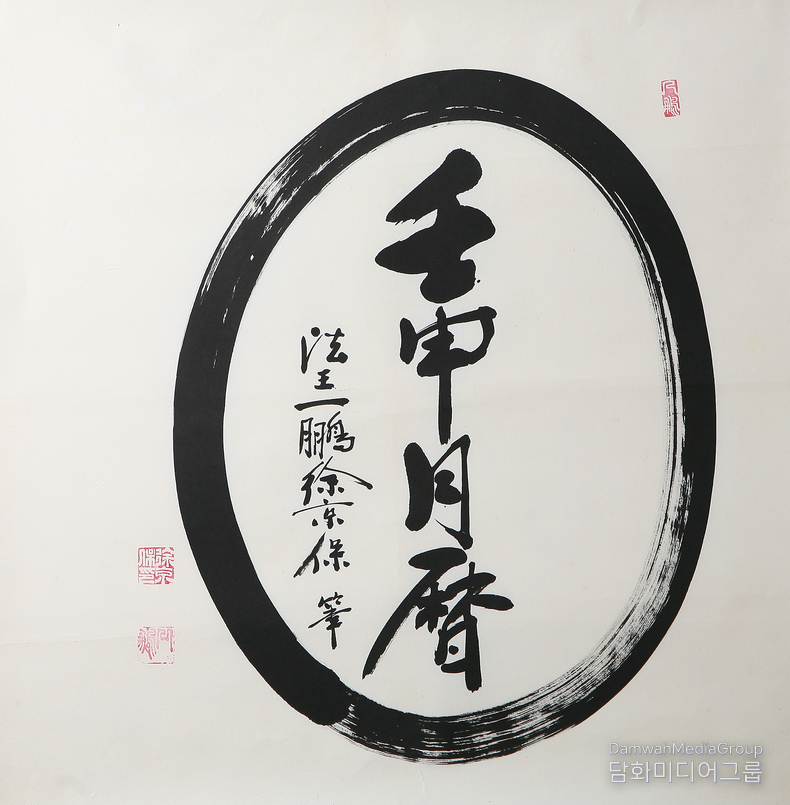 壬申月曆
法王一鵬徐京保筆
DamwahMediaGroup
담화미디어그룹